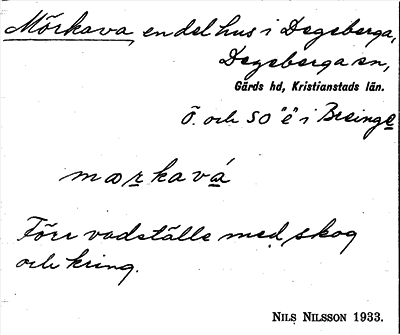 Mörkava, en del hus i Degeberga,
Degeberga sn,
Gärds hd, Kristianstads län.
Ö. och SO "é" i
mœrkavá
Förr vadställe med skog
och kring.
NILS NILSSON 1933.